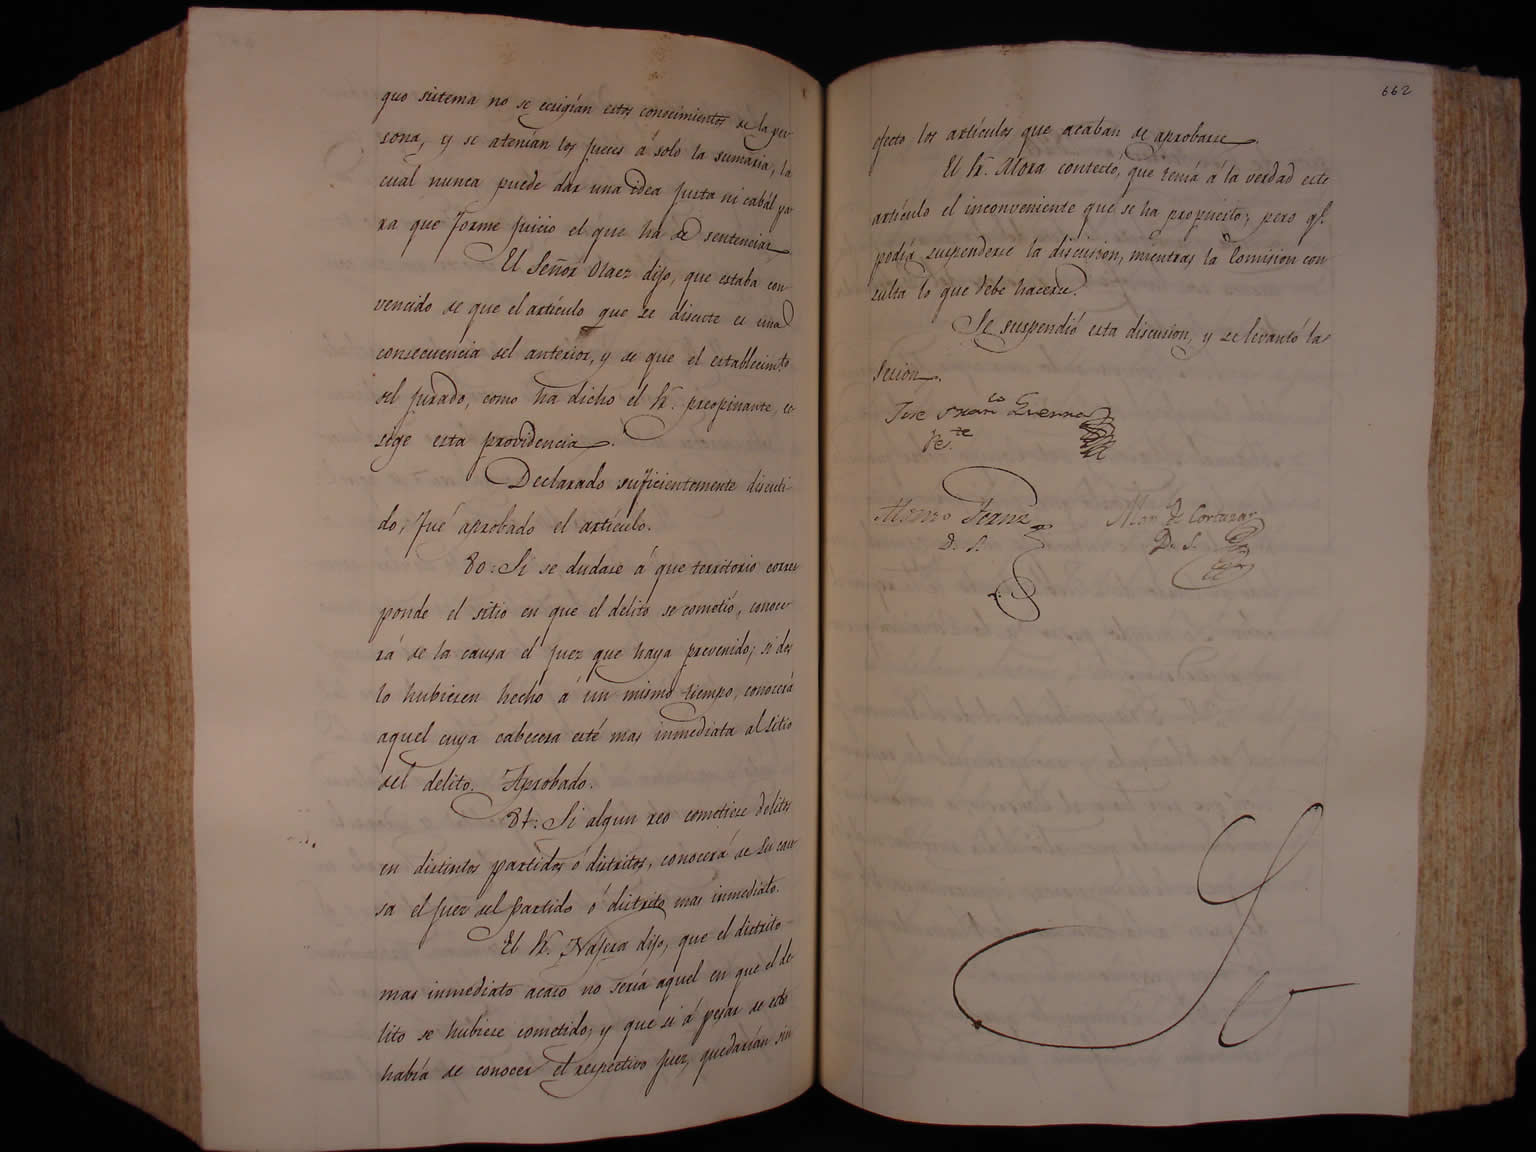 guo sistema no se ecsigían estos conocimientos de la per
sona, y se atenían los jueces á solo la sumaria, la
cual nunca puede dar una idea justa ni cabál pa
ra que forme juicio el que ha de sentenciar.
El Señor Olaez dijo, que estaba con
vencido de que el artículo que se discute es una
consecuencia del anterior, y de que el establecim.to
del jurado, como ha dicho el Sr. preopinante, ec
sige esta providencia.
Declarado suficientemente discuti
do, fué aprobado el artículo.
80: Si se dudare á que territorio corres
ponde el sitio en que el delito se cometió, conoce
rá de la causa el juez que haya prevenido; si dos
lo hubieren hecho á un mismo tiempo, conocerá
aquel cuya cabecera esté mas inmediata al sitio
del delito. Aprobado.
81: Si algun reo cometiere delitos
en distintos partidos ó distritos, conocerá de su cau
sa el juez del partido ó distrito mas inmediato.
El Sr. Najera dijo, que el distrito
mas inmediato acaso no sería aquel en que el de
lito se hubiese cometido; y que si á pesar de esto
había de conocer el respectivo juez, quedarían sin
662
efecto los artículos que acaban de aprobarse.
El Sr. Mora contestó, que tenía á la verdad este
artículo el inconveniente que se ha propuesto; pero q.e
podía suspenderse la discusion, mientras la Comision con
sulta lo que debe hacerse.
Se suspendió esta discusion, y se levantó la
sesion.
Jose Fran.co Guerra
Pe.te
Alonzo Fernz
D. S.
Mar. de Cortazar
D. S.